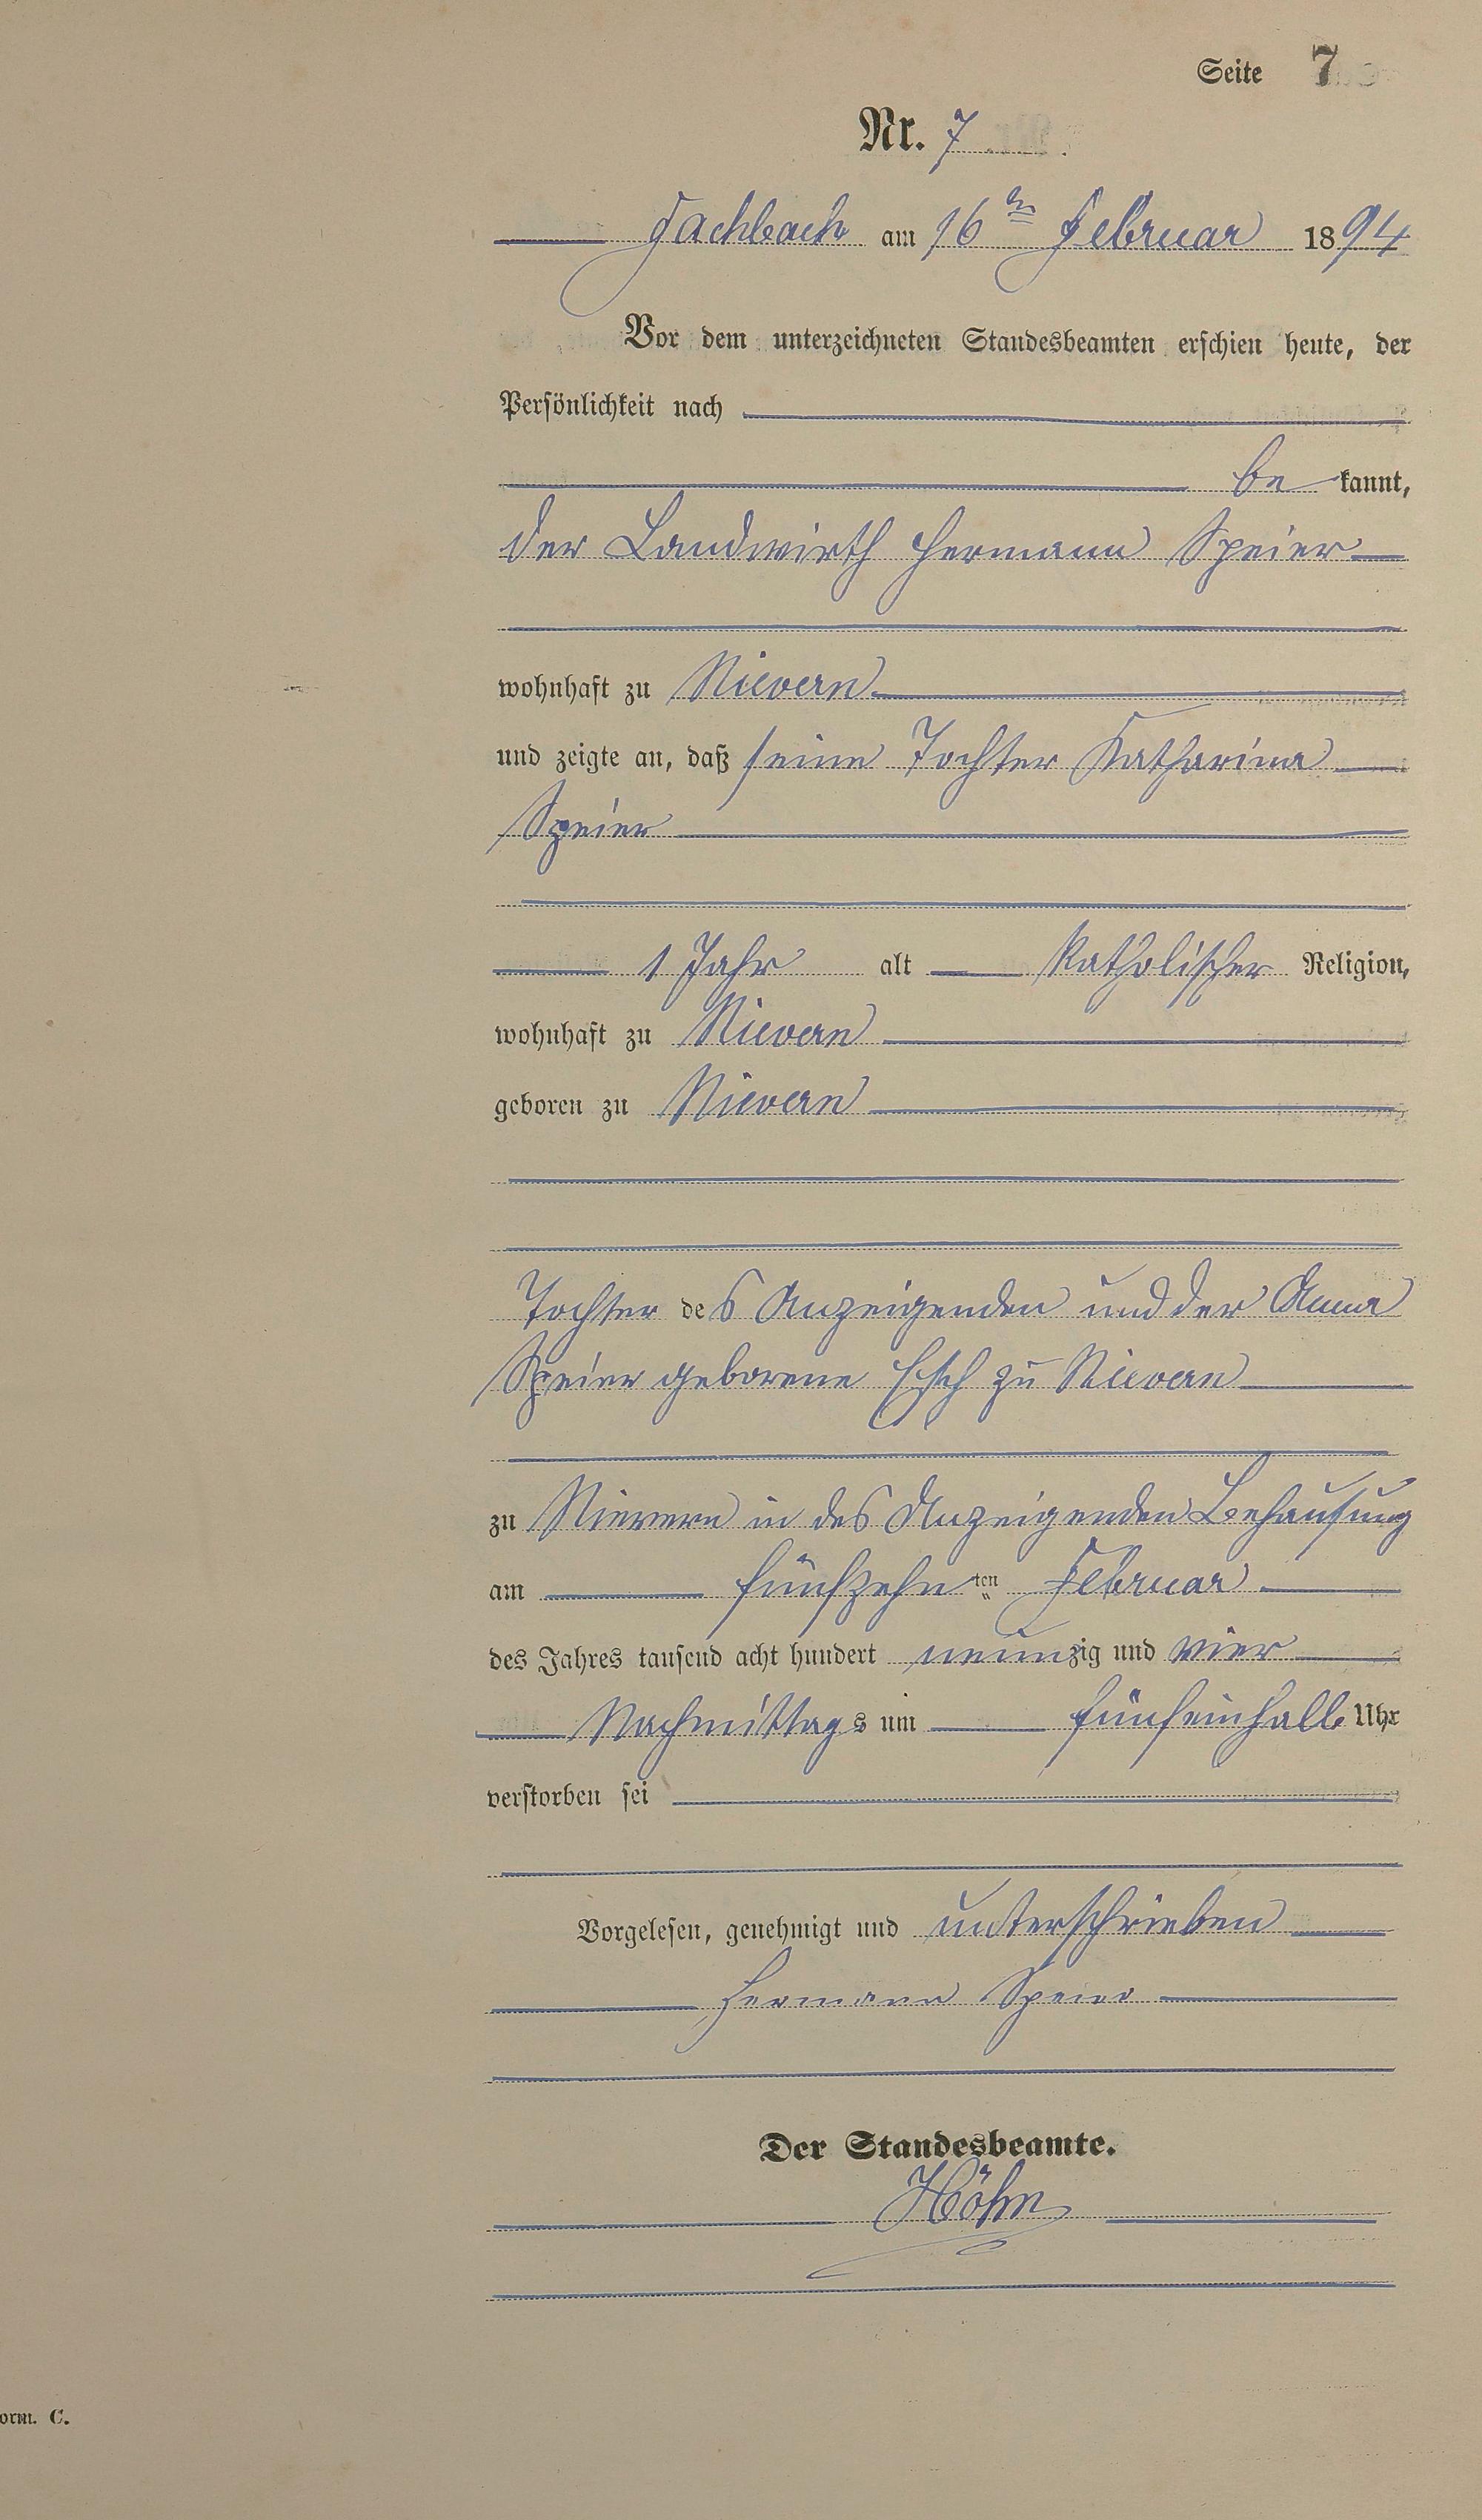 Seite 7
Nr. 7
Fachbach am 16ten Februar 1894
Vor dem unterzeichneten Standesbeamten erschien heute, der
Persönlichkeit nach
be kannt,
der Landwirth Hermann Speier
wohnhaft zu Nievern
und zeigte an, daß seine Tochter Katharina
Speier
1 Jahr alt katholischer Religion,
wohnhaft zu Nievern
geboren zu Nievern
Tochter des Anzeigenden und der Anna
Speier geborene Esch zu Nievern
zu Nievern in des Anzeigenden Behausung
am fünfzehnten Februar
des Jahres tausend acht hundert neunzig und vier
Nachmittags um fünfeinhalb Uhr
verstorben sei
Vorgelesen, genehmigt und unterschrieben
Hermann Speier
Der Standesbeamte.
Höhn
orm. C.